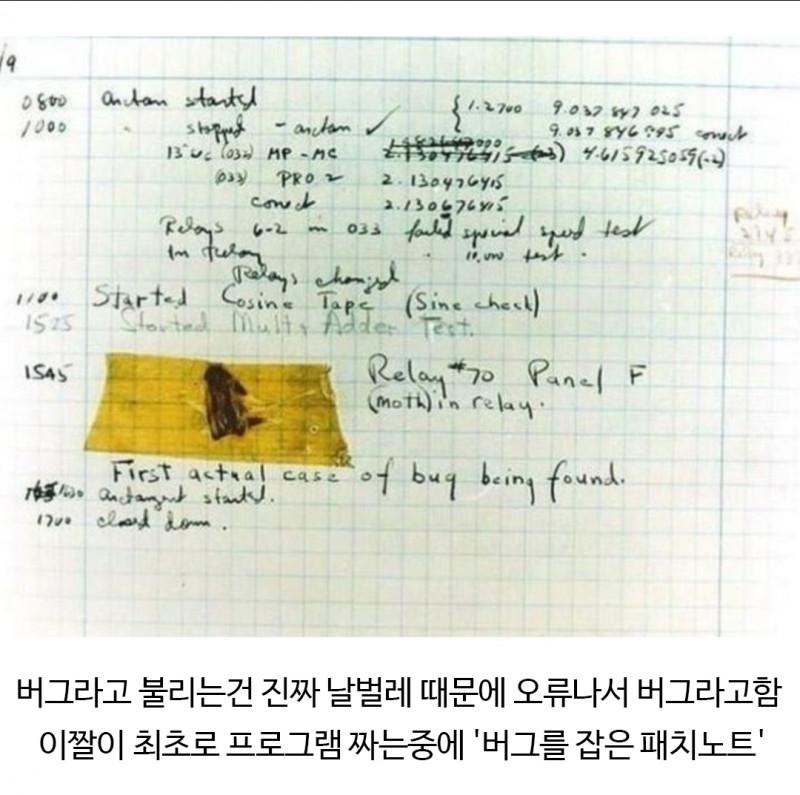 /9
0800 arctan started { 1.2700 9.037 847 025
1000 " stopped - arctan ✓ 9.037 846 995 correct
13"uc (032) MP - MC 2.130476415 (-3) 4.615925059(-2)
(033) PRO 2 2.130476415
correct 2.130676415
Relays 6-2 in 033 failed special speed test
In Relay " 10,000 test .
Relay
Relays changed
1100 Started Cosine Tape (Sine check)
1525 Started Mult + Adder Test.
1545 Relay #70 Panel F
(moth) in relay.
First actual case of bug being found.
1630 arctangent started.
1700 closed down.
버그라고 불리는건 진짜 날벌레 때문에 오류나서 버그라고함
이짤이 최초로 프로그램 짜는중에 '버그를 잡은 패치노트'